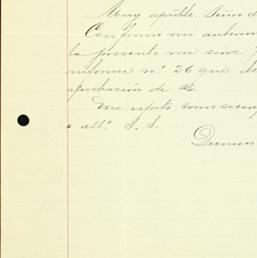 Muy apable. Señor
Confirmo mi
la presente me sirve
informe n.º 26 que
aprobación de
Me repito como siemp
all.º S. S.